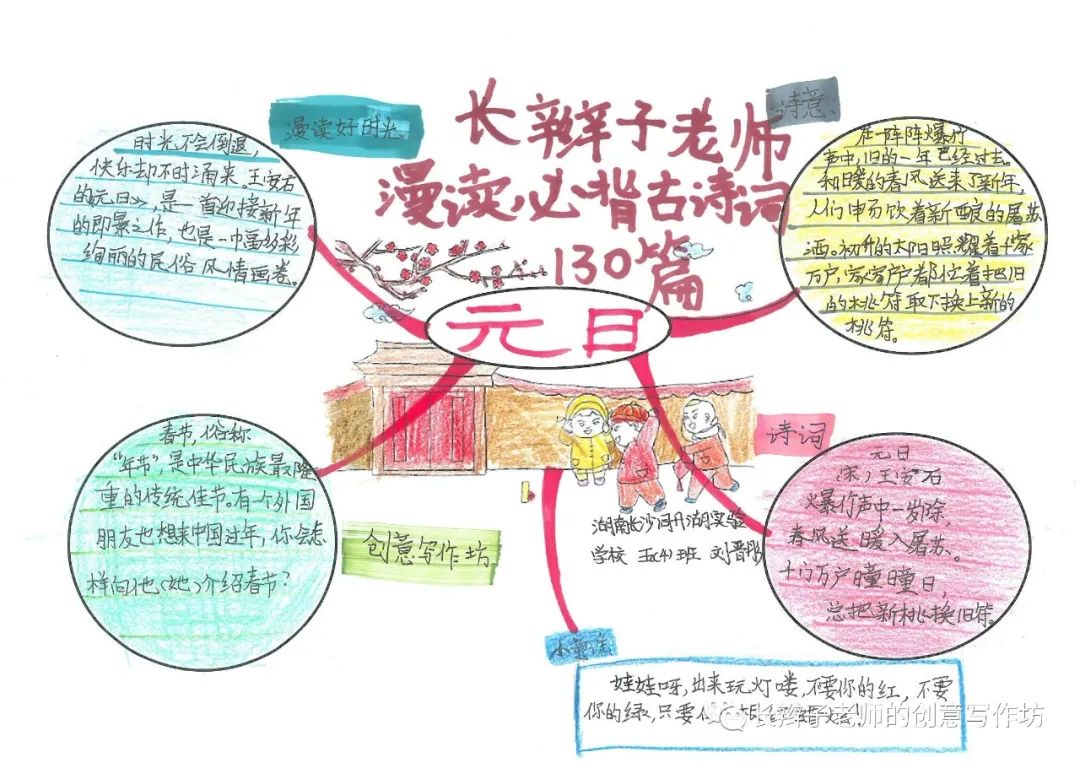 长辫子老师
漫读必背古诗词
130篇
元日
漫读好时光
时光不会倒退,
快乐却不时涌来。王安石
的《元日》,是一首迎接新年
的即景之作,也是一幅多彩
绚丽的民俗风情画卷。
诗意
在一阵阵爆竹
声中,旧的一年已经过去。
和暖的春风送来了新年,
人们
饮着新酿的屠苏
酒。初升的太阳照耀着千家
万户,家家户户都忙着把旧
的桃符取下换上新的
桃符。
创意写作坊
春节,俗称
“年节”,是中华民族最隆
重的传统佳节。有个外国
朋友也想来中国过年,你会怎
样向他(她)介绍春节?
诗词
元日
宋,王安石
爆竹声中一岁除,
春风送暖入屠苏。
千门万户曈曈日,
总把新桃换旧符。
湖南长沙
实验
学校
班 刘晋
小童谣
娃娃呀,出来玩灯喽,不要你的红,不要
你的绿,只要你
长辫子老师的创意写作坊